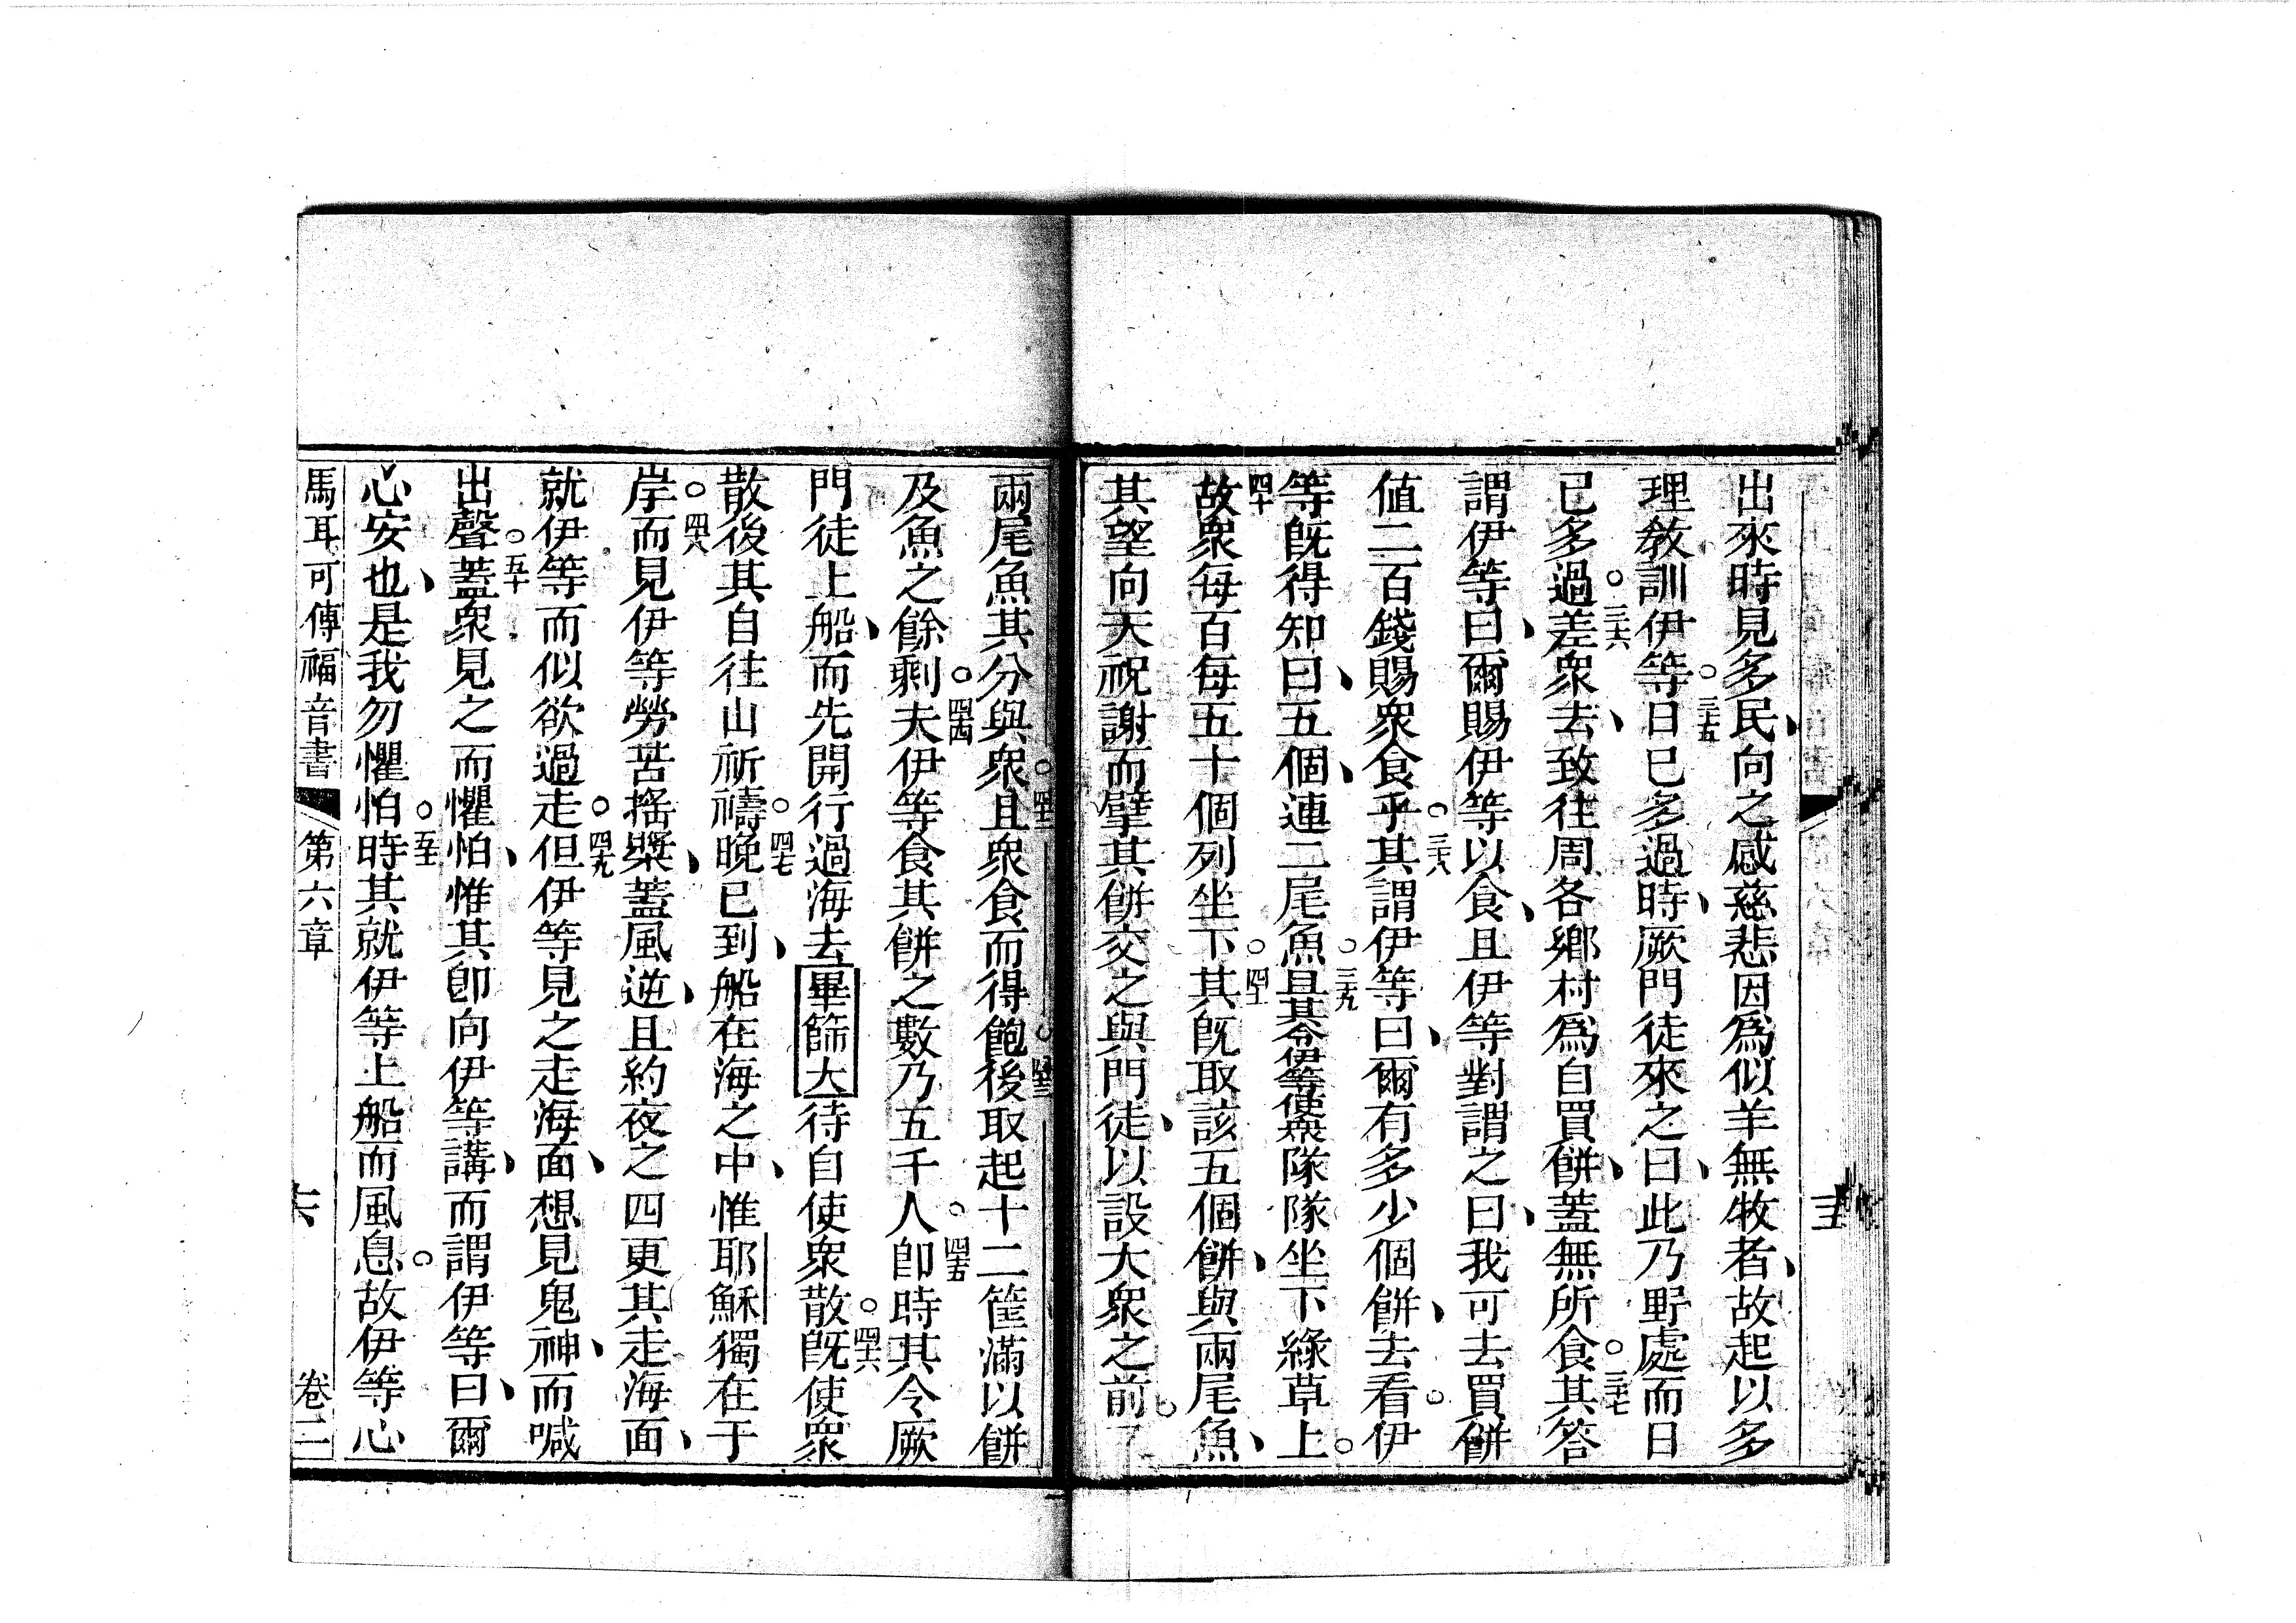 出來時見多民、向之感慈悲因爲似羊無牧者、故起以多
理教訓伊等○三十五日已多過時、厥門徒來之曰、此乃野處而日
已多過○三十六差衆去、致往周各鄉村爲自買餅、蓋無所食○三十七其答
謂伊等曰、爾賜伊等以食、且伊等對謂之曰、我可去買餅
值二百錢賜衆食乎○三十八其謂伊等曰、爾有多少個餅、去看○伊
等既得知曰、五個、連二尾魚○三十九且其令伊等使衆隊隊坐下綠草上○
四十故衆每百每五十個列坐下○四十一其既取該五個餅、與兩尾魚、
其望向天祝謝而擘其餅交之與門徒、以設大衆之前○
兩尾魚其分與衆○四十二且衆食而得飽○四十三後取起十二筐滿以餅
及魚之餘剩○四十四夫伊等食其餅之數乃五千人○四十五卽時其令厥
門徒上船、而先開行過海去畢篩大待自使衆散○四十六既使衆
散後其自往山祈禱○四十七晚已到、船在海之中、惟耶穌獨在于
岸○四十八而見伊等勞苦搖槳、蓋風逆、且約夜之四更其走海面、
就伊等而似欲過走○四十九但伊等見之走海面、想見鬼神、而喊
出聲○五十蓋衆見之而懼怕、惟其卽向伊等講、而謂伊等曰、爾
心安也、是我勿懼怕○五十一時其就伊等上船而風息○故伊等心
馬耳可傳福音書 第六章 十六 卷二